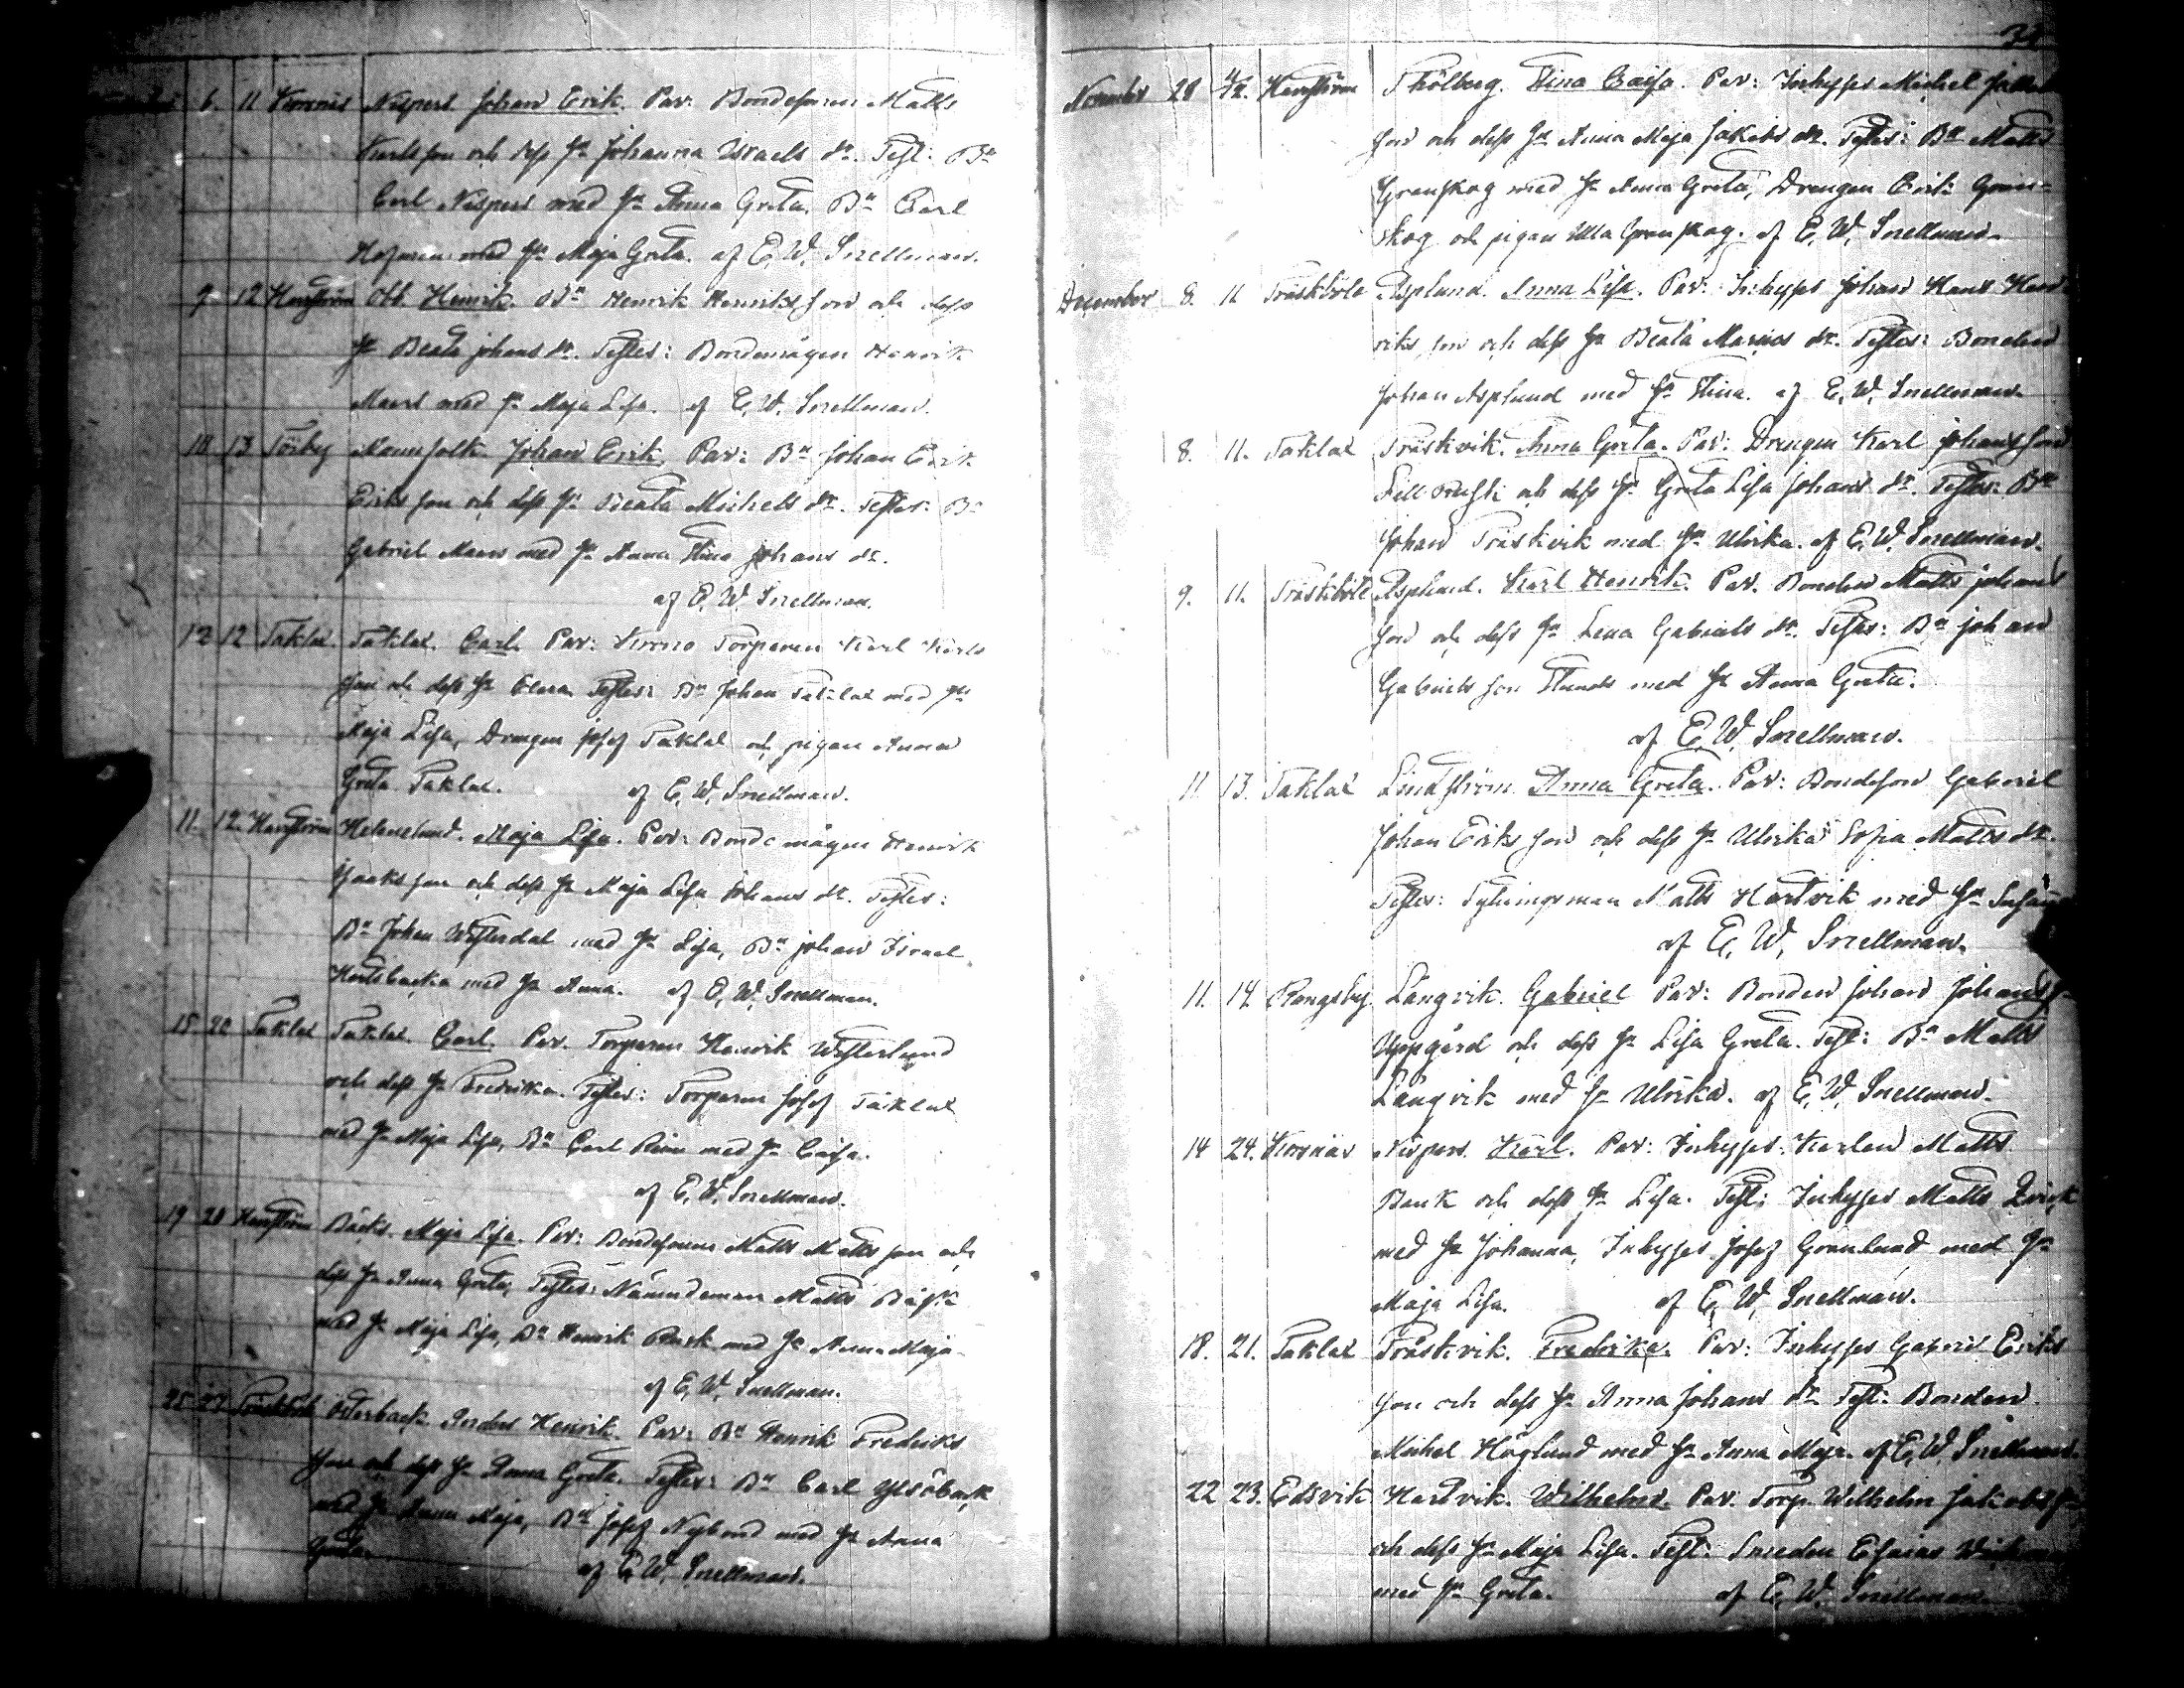 6. 11 Korsnäs Nispers Johan Erik. Par: Bondesonen Matts
Karlsson och dess hu Johanna Israels dr. Test: Bn
Carl Nispers med hu Anna Greta, Bn Carl
med hu Maja Greta. af E. W. Snellman.
9 12 Harrström Abb. Henrik. Bn Henrik Henriksson och dess
hu Beata Johans dr. Testes: Bondemågen Henrik
med hu Maja Lisa. af E. W. Snellman.
10 13 Töjby Mannfolk Johan Erik, Par: Bn Johan Erik
Eriksson och dess hu Beata Michels dr. Testes: Bn
Gabriel med hu Anna Stina Johans dr.
af E. W. Snellman.
12 12 Taklax Taklax. Carl. Par: Krono Torparen Karl Karls
son och dess hu Clara. Testes: Bn Johan Taklax med hu
Maja Lisa, Drengen Josef Taklax och pigan Anna
Greta Taklax. af E. W. Snellman.
11. 12. Harrström Helenelund. Maja Lisa. Par: Bondemågen Henrik
Isaksson och dess hu Maja Lisa Johans dr. Testes:
Bn Johan Westerdal med hu Lisa, Bn Johan Israel
med hu Anna. af E. W. Snellman.
15 20 Taklax Taklax. Carl. Par. Torparen Henrik Westerlund
och dess hu Fredrika. Testes: Torparen Josef Taklax
med hu Maja Lisa, Bn Carl med hu Caisa.
af E. W. Snellman.
19 20 Harrström Bäcks. Maja Lisa. Par: Bondesonen Matts Mattsson och
dess hu Anna Greta, Testes: Nämndeman Matts
med hu Maja Lisa, Bn Henrik med hu Anna Maja
af E. W. Snellman.
25 27 Träskböle Österback Anders Henrik. Par: Bn Henrik Fredriks
son och dess hu Anna Greta. Testes: Bn Carl
med hu Anna Maja, Bn Josef Nybond med hu Anna
Greta. af E. W. Snellman.
November 28 4/12. Harrström Thölberg. Stina Caisa. Par: Inhyses Michel
son och dess hu Anna Maja Jakobs dr. Testes: Bn Matts
Granskog med hu Anna Greta, Drengen Erik Gran-
skog och pigan Ulla Granskog. af E. W. Snellman.
December 8. 11 Träskböle Asplund. Anna Lisa. Par: Inhyses Johan Hen
riksson och dess hu Beata dr. Testes: Bonden
Johan Asplund med hu Stina. af E. W. Snellman.
8. 11. Taklax Träskvik. Anna Greta. Par: Drengen Karl Johansson
och dess hu Greta Lisa Johans dr. Testes: Bn
Johan Träskvik med hu Ulrika. af E. W. Snellman.
9. 11. Träskböle Asplund. Karl Henrik. Par. Bonden Matts Johans
son och dess hu Lena Gabriels dr. Testes: Bn Johan
Gabrielsson med hu Anna Greta.
af E. W. Snellman.
11 13. Taklax Lindström. Anna Greta. Par: Bondeson Gabriel
Johan Eriksson och dess hu Ulrika Sofia Matts dr.
Testes: Matts Hartvik med hu
af E. W. Snellman.
11. 14. Rangsby. Långvik. Gabriel Par: Bonden Johan Johans
Uppgård och dess hu Lisa Greta. Test: Bn Matts
Långvik med hu Ulrika. af E. W. Snellman.
14 24. Korsnäs Nispers. Karl. Par: Inhyses Karlen Matts
och dess hu Lisa. Test: Inhyses Matts
med hu Johanna, Inhyses Josef Granlund med hu
Maja Lisa. af E. W. Snellman.
18. 21. Taklax Träskvik. Fredrika. Par: Inhyses Gabriel Eriks
son och dess hu Anna Johans dr Test: Bonden
Michel Höglund med hu Anna Maja. af E. W. Snellman.
22 23. Edsvik Hartvik. Wilhelm. Par. Torp. Wilhelm Jakobs
och dess hu Maja Lisa. Test: Smeden Esaias
med hu Greta. af E. W. Snellman.